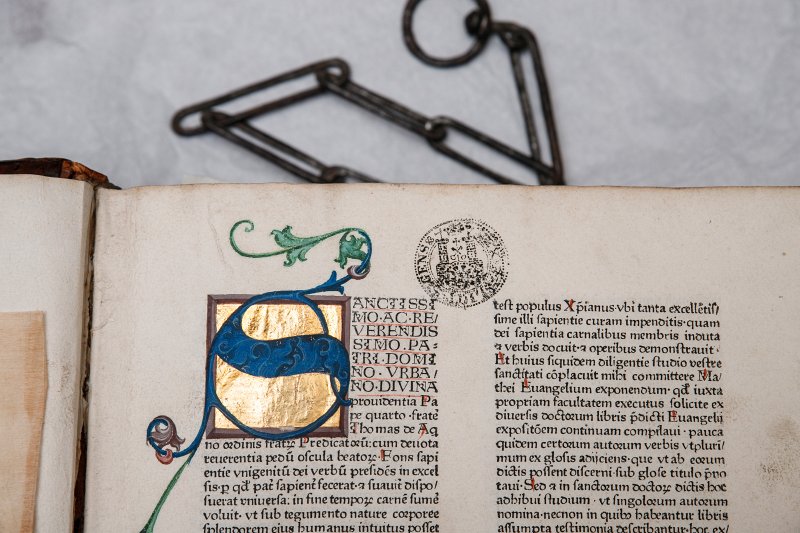 SANCTISSI
MO·AC·RE/
VERENDIS
SIMO·PA-
TRI·DOMI
NO·VRBA/
NO·DIVINA
prouidentia Pa
pe quarto·fratẽ
Thomas de Aq
no ordinis fratꝝ Predicatoꝝ:cum deuota
reuerentia pedũ oscula beatoꝝ·Fons sapi
entie vnigenitũ dei verbũ presidẽs in excel
sis·p qđ pat̃ sapienť fecerat·⁊ suauiť dispo/
suerat vniuersa: in fine tempoꝝ carnẽ sumẽ
voluit·vt sub tegumento nature corporee
splendorem eius humanus intuitus posset
test populus Xp̃ianus·vbi tanta excellẽtiſſ
sime illi sapientie curam impenditis·quam
dei sapientia carnalibus membris induta
⁊ verbis docuit·⁊ operibus demonstrauit·
Et huius siquidem diligentie studio vestre
sanctitati cõplacuit mihi committere Ma/
thei Euangelium exponendum·qđ iuxta
propriam facultatem executus solicite ex
diuersis doctorum libris p̃dicti Euangelii
expositõem continuam compilaui·pauca
quidem certorum autorum verbis vtpluri/
mum ex glosis adiiciens·que vt ab eorum
dictis possent discerni·sub glose titulo p̃no
taui·Sed ⁊ in sanctorum doctoꝝ dictis hoc
adhibui studium·vt singulorum autorum
nomina·necnon in quibꝰ habeantur libris
assumpta testimonia describantur·hoc ex/